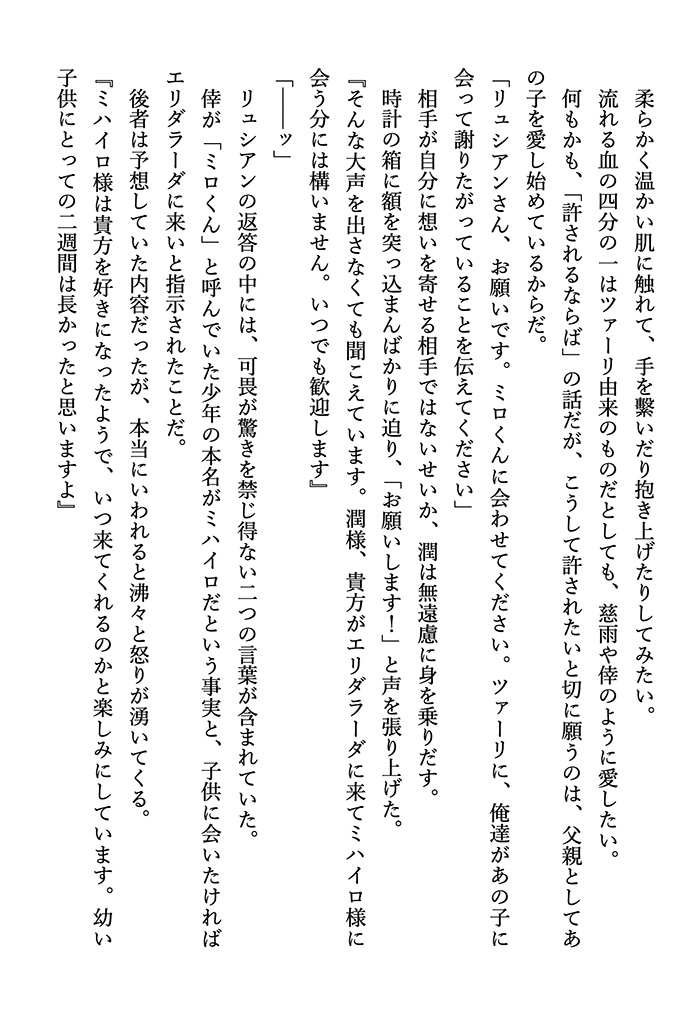 柔らかく温かい肌に触れて、手を繋いだり抱き上げたりしてみたい。
流れる血の四分の一はツァーリ由来のものだとしても、慈雨や倖のように愛したい。
何もかも、「許されるならば」の話だが、こうして許されたいと切に願うのは、父親としてあ
の子を愛し始めているからだ。
「リュシアンさん、お願いです。ミロくんに会わせてください。ツァーリに、俺達があの子に
会って謝りたがっていることを伝えてください」
相手が自分に想いを寄せる相手ではないせいか、潤は無遠慮に身を乗りだす。
時計の箱に額を突っ込まんばかりに迫り、「お願いします！」と声を張り上げた。
『そんな大声を出さなくても聞こえています。潤様、貴方がエリダラーダに来てミハイロ様に
会う分には構いません。いつでも歓迎します』
「――ッ」
リュシアンの返答の中には、可畏が驚きを禁じ得ない二つの言葉が含まれていた。
倖が「ミロくん」と呼んでいた少年の本名がミハイロだという事実と、子供に会いたければ
エリダラーダに来いと指示されたことだ。
後者は予想していた内容だったが、本当にいわれると沸々と怒りが湧いてくる。
『ミハイロ様は貴方を好きになったようで、いつ来てくれるのかと楽しみにしています。幼い
子供にとっての二週間は長かったと思いますよ』